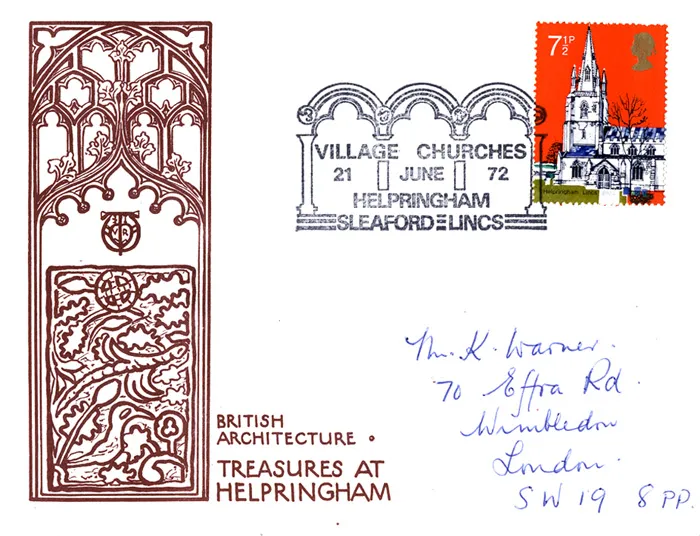 7½P
Helpringham Lincs
VILLAGE CHURCHES
21 JUNE 72
HELPRINGHAM
SLEAFORD LINCS
Mr. K. Warner.
70 Effra Rd.
Wimbledon
London.
SW19 8PP.
BRITISH
ARCHITECTURE
TREASURES AT
HELPRINGHAM